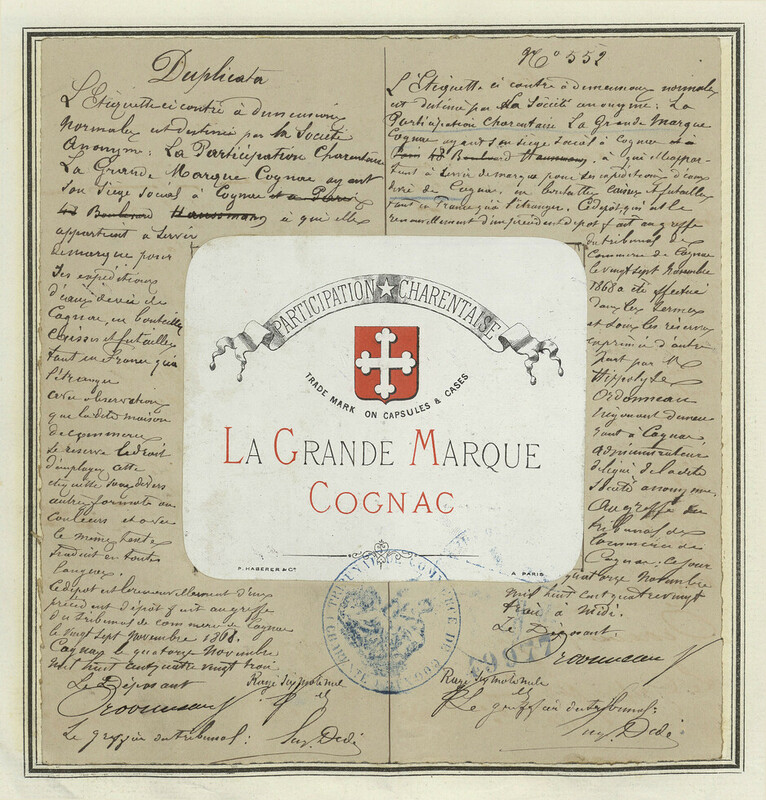 Duplicata
L'Etiquette ci contre à dimensions
normales est destinée par la Société
Anonyme: La Participation Charentaise
La Grande Marque Cognac ayant
son siège social à Cognac et à Paris
48 Boulevard Haussmann, à qui elle
appartient à servir
de marque pour
ses expéditions
d'eaux de vie de
Cognac, en bouteilles
caisses et futailles
tant en France qu'à
l'étranger
avec observation
que la dite maison
de commerce
se réserve le droit
d'employer cette
étiquette sous divers
autres formats ou
couleurs et avec
le même texte
traduit en toutes
langues.
Ce dépôt est le renouvellement d'un
précédent dépôt fait au greffe
du tribunal de commerce de Cognac
le vingt sept novembre 1868.
Cognac le quatorze Novembre
mil huit cent quatre vingt trois
Le Déposant
Rayé sept mots nuls
Le greffier du tribunal:
No 552
L'Etiquette ci contre à dimensions normales
est destinée par la Société anonyme: La
Participation Charentaise La Grande Marque
Cognac ayant son siège social à Cognac et à
Paris 48 Boulevard Haussmann, à qui elle appar-
tient à servir de marque pour ses expéditions d'eaux
de vie de Cognac, en bouteilles caisses et futailles
tant en France qu'à l'étranger. Ce dépôt, qui est le
renouvellement d'un précédent dépôt fait au greffe
du tribunal de
Commerce de Cognac
le vingt sept Novembre
1868 a été effectué
dans les termes
et sous les réserves
exprimés d'autre
part par Mr
Hippolyte
Ordonneau
négociant demeu
rant à Cognac,
administrateur
délégué de la dite
Société anonyme,
Au greffe du
tribunal de
Commerce de
Cognac, ce jour
quatorze Novembre
mil huit cent quatre vingt
trois à midi.
Le Déposant.
Rayé sept mots nuls
Le greffier du tribunal:
PARTICIPATION CHARENTAISE
TRADE MARK ON CAPSULES & CASES
LA GRANDE MARQUE
COGNAC
P. HABERER & Cie A PARIS
TRIBUNAL DE COMMERCE DE COGNAC